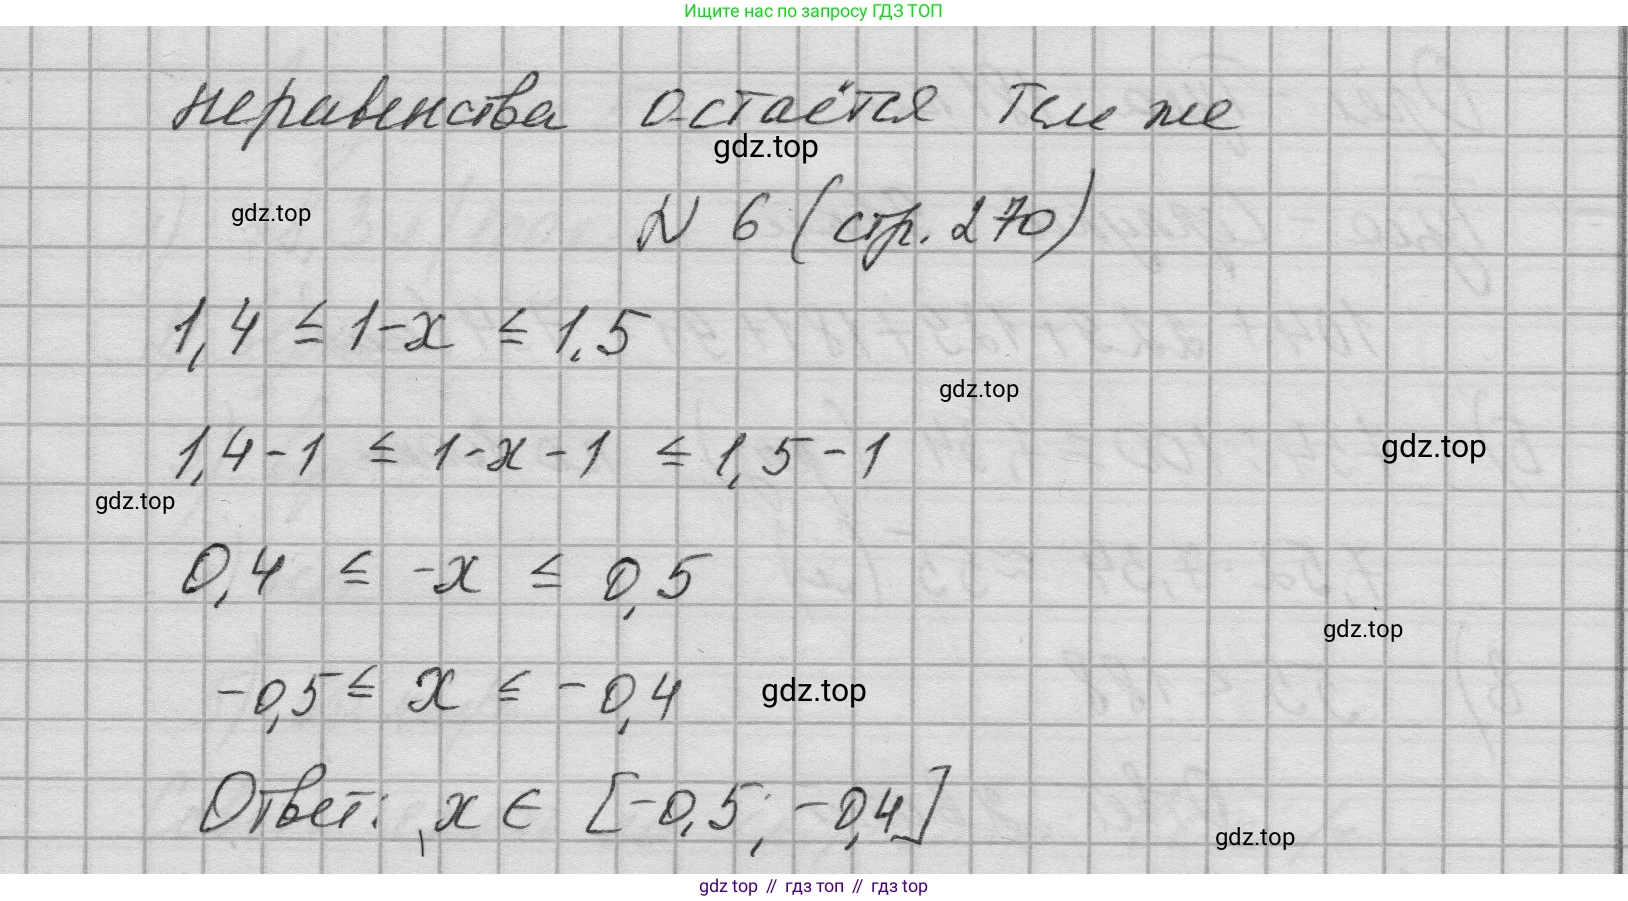 Ищите нас по запросу ГДЗ ТОП
неравенства остаётся тем же
gdz.top
gdz.top
N 6 (стр. 270)
1,4 ≤ 1-x ≤ 1,5
gdz.top
1,4-1 ≤ 1-x-1 ≤ 1,5-1
gdz.top
gdz.top
0,4 ≤ -x ≤ 0,5
gdz.top
-0,5 ≤ x ≤ -0,4
gdz.top
Ответ: x ∈ [-0,5; -0,4]
gdz.top
gdz top // гдз топ // гдз top